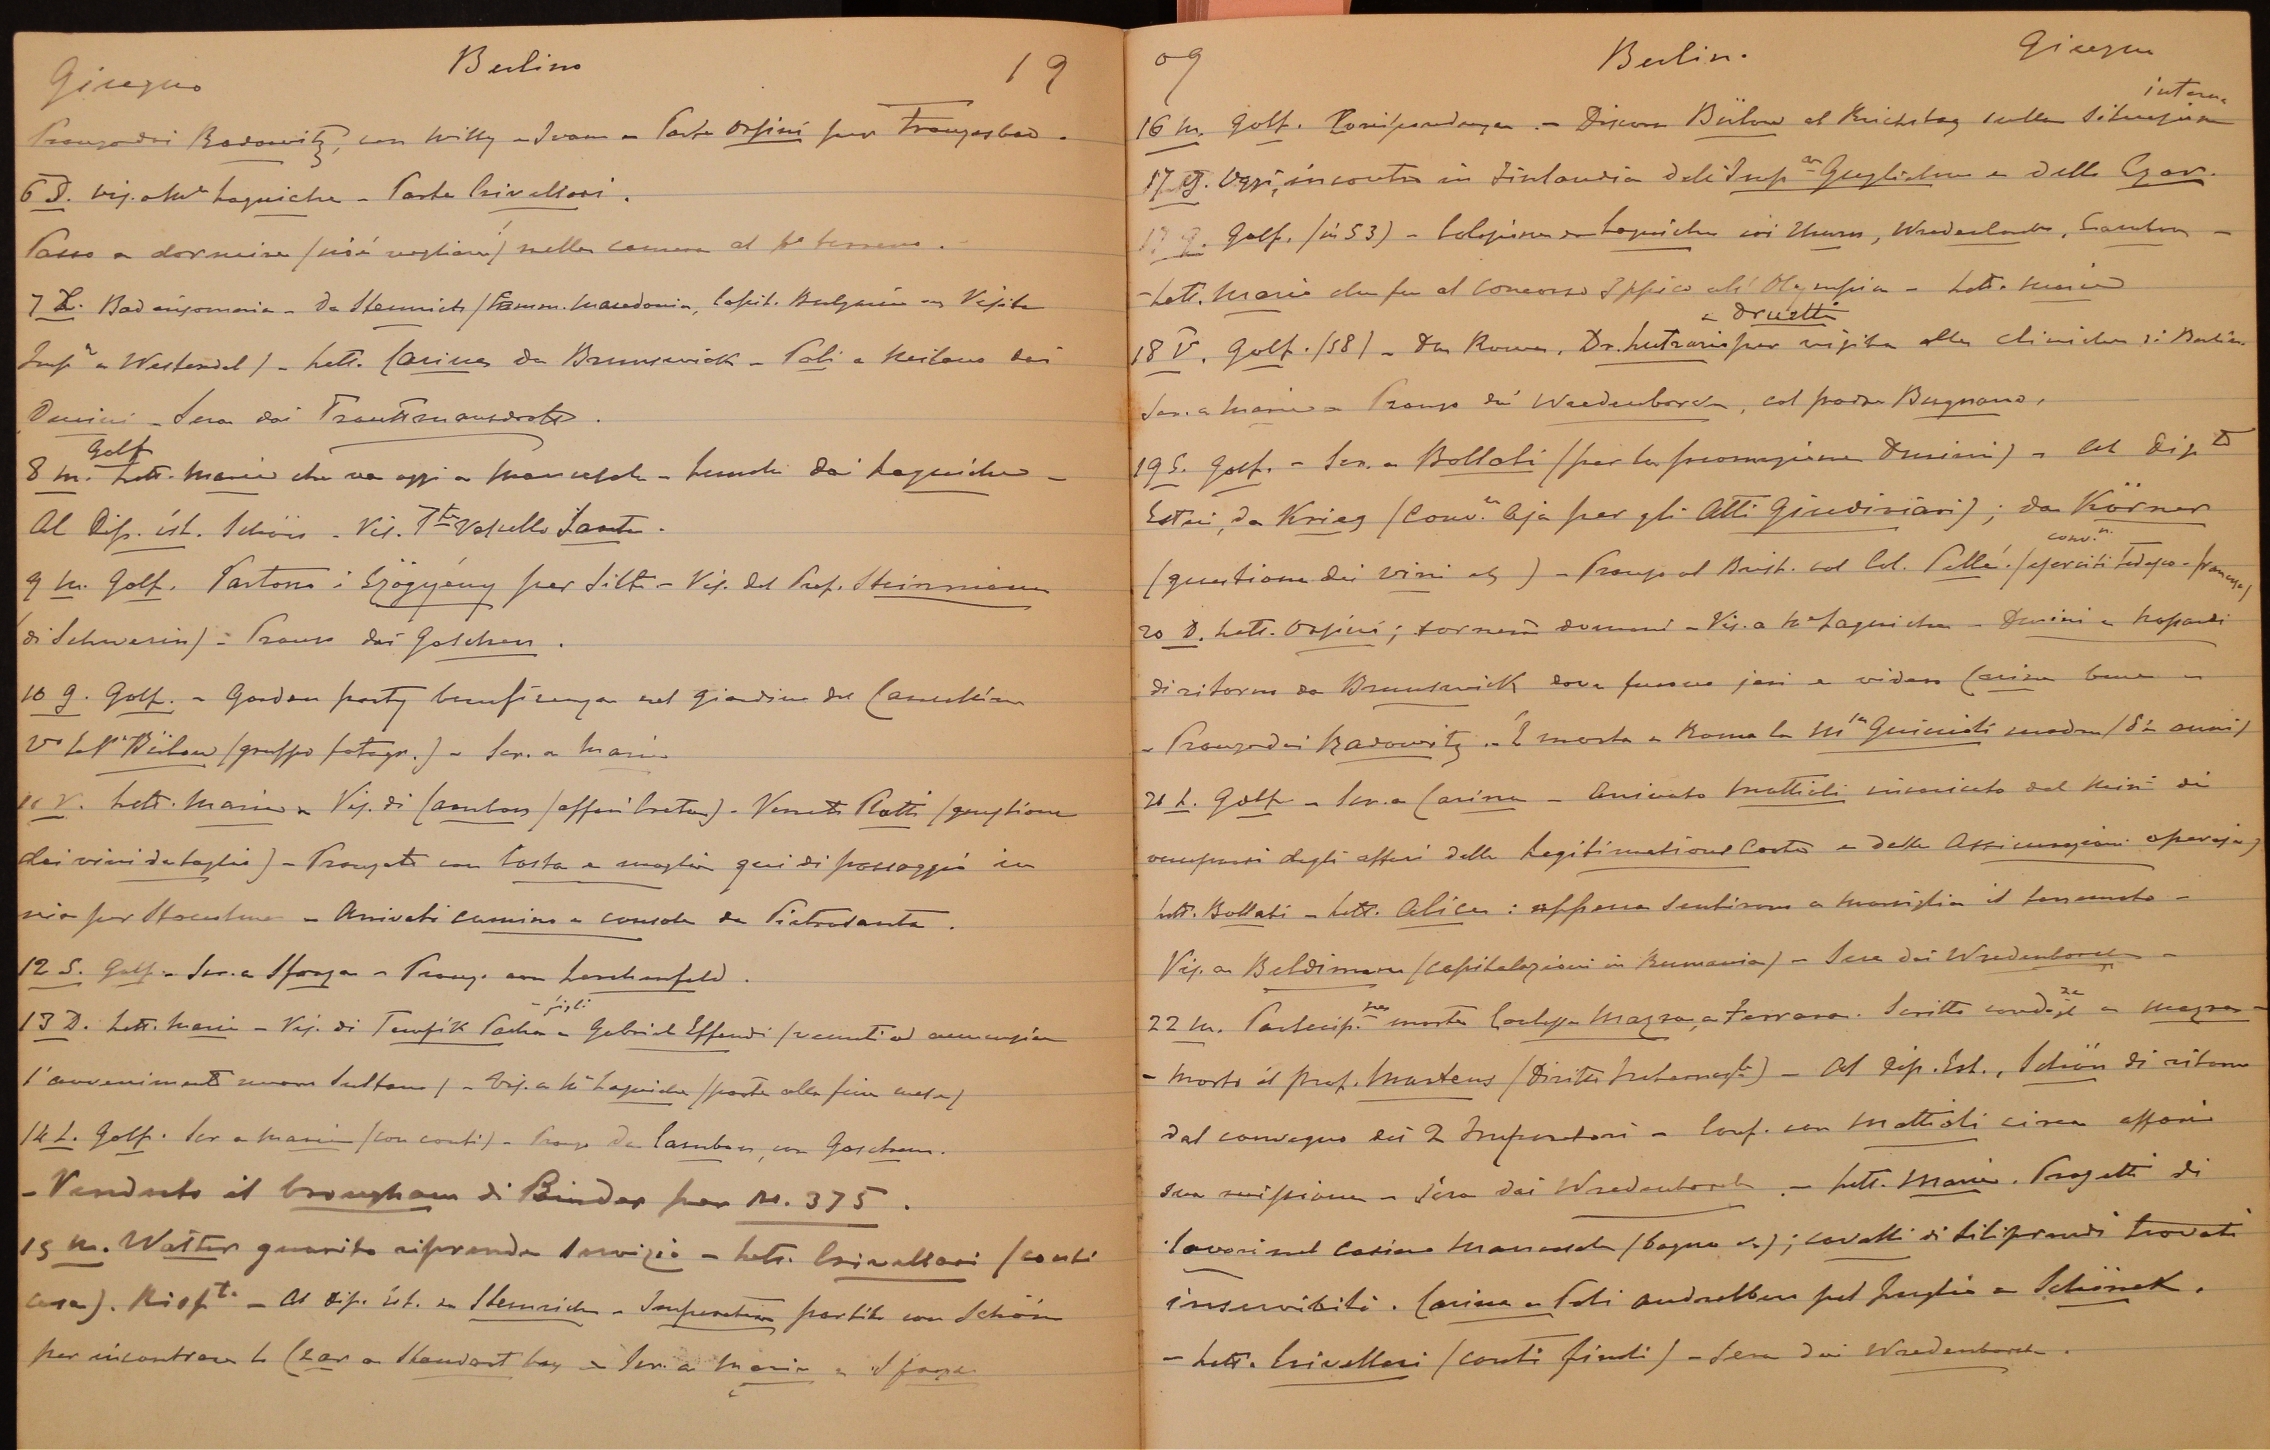 Giugno Berlino 19
Pranzo dai Radowitz, con Willy e Ivam - Parte Orsini per Franzesbad.
6 D. Vis. a Mme Lagniche - Parte Crivellari.
Passo a dormire (cioè vegliare) nella camera al po terreno.
7 L. Bad ingomeria - Da Stemrich (Famm. Macedonia, Capit. Bulgaria - Visita
Imp. a Westendel) - Lett. Carina da Brunswick - Poli a Milano dai
Durini - Sera dai Trauttmansdorff.
8 M. Golf Lett. Maria che va oggi a - Lunch dai Lagniche -
Al Dip. Est. Schön - Vis. Tte Vascello Lante.
9 M. Golf. Partono i Szögyény per Silt - Vis. del Prof. Steinmann
(di Schwerin) - Pranzo dai Goschen.
10 G. Golf. - Garden party beneficenza nel giardino del Cancelliere
Va la Pa Bülow (gruppo fotogr.) - Scr. a Maria
11 V. Lett. Maria - Vis. di Cambon (affari Creta) - Venuto Ratti (questione
dei vini da taglio) - Pranzato con Costa e moglie qui di passaggio in
via per Stoccolma - Arrivati camino e consola da Pietrasanta.
12 S. Golf - Scr. a Sforza - Pranzo con Lerchenfeld.
13 D. Lett. Maria - Vis. di Tewfik Pacha - figli e Gabriel Effendi (venuti ad annunziare
l'avvenimento nuovo Sultano) - Vis. a Me Lagniche (parte alla fine mese)
14 L. Golf. Scr a Maria (con conti) - Pranzo da Cambon, con Goschen.
- Venduto il brougham di Binder per M. 375.
15 M. Walter guarito riprende servizio - Lett. Crivellari (conti
casa). Rispta. - Al Dip. Est. da Stemrich - Imperatore partito con Schön
per incontrare lo Czar a Standart bay - Scr. a Maria e Sforza
09 Berlin. Giugno
16 M. Golf. Corrispondenza. - Discorso Bülow al Reichstag sulla situazione interna
17 G. Oggi, incontro in Finlandia dell'Impre Guglielmo e dello Czar.
17 G. Golf. (in 53) - Colazione da Lagniche coi Thurn, Wredenborch, Cambon -
- Lett. Maria che fu al Concorso Ippico all'Olympia - Lett. Maria
18 V. Golf. (58) - Da Roma, Dr. Lutrario e Druetti per visita alle cliniche di Berlino
Scr. a Maria - Pranzo dai Wredenborch, col padre Bugnano.
19 S. Golf. - Scr. a Bollati (per la promozione Durini) - Al Dipto
Esteri, da Krieg (Conv.ne Aja per gli Atti Giudiziari); da Körner
(questione dei vini etc) - Pranzo al Brist. col Col. Pellé. (conv.n. eserciti tedesco-francese)
20 D. Lett. Orsini; tornerà domani - Vis. a Me Lagniche - Durini e
di ritorno da Brunswick dove furono jeri e videro Carina bene -
- Pranzo dai Radowitz. - È morta a Roma la Ma Guiccioli madre (82 anni)
21 L. Golf - Scr. a Carina - Arrivato Mattioli incaricato dal Min. di
occuparsi degli affari della Legitimations Carte e delle Assicurazioni operaje)
Lett. Bollati - Lett. Alice: appena sentirono a Marsiglia il terremoto -
Vis. a Beldiman (capitolazioni in Rumania) - Sera dai Wredenborch -
22 M. Partecip.ne morte Contessa Magra, a Ferrara. Scritto condogl.ze a Magra -
- Morto il prof. Martens (Diritto Internazle) - Al Dip. Est., Schön di ritorno
dal convegno dei 2 Imperatori - Conf. con Mattioli circa affari
sua missione - Sera dai Wredenborch. - Lett. Maria. Progetti di
lavori nel casino (bagno etc); cavalli di Liliprandi trovati
inservibili. Carina e Poli andrebbero pel Juglio a Schöneck.
- Lett. Crivellari (conti finiti) - Sera dai Wredenborch.